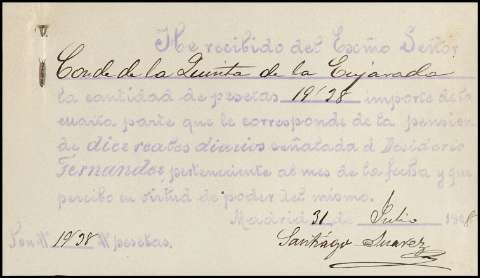 He recibido del Exmo Señor
Conde de la Quinta de la Enjarada
la cantidad de pesetas 19'38 importe de la
cuarta parte que le corresponde de la pension
de diez reales diarios señalada á Desiderio
Fernandez, perteneciente al mes de la fecha y que
percibo en virtud de poder del mismo.
Madrid 31 de Julio
Son # 19'38 # pesetas.
Santiago Suarez